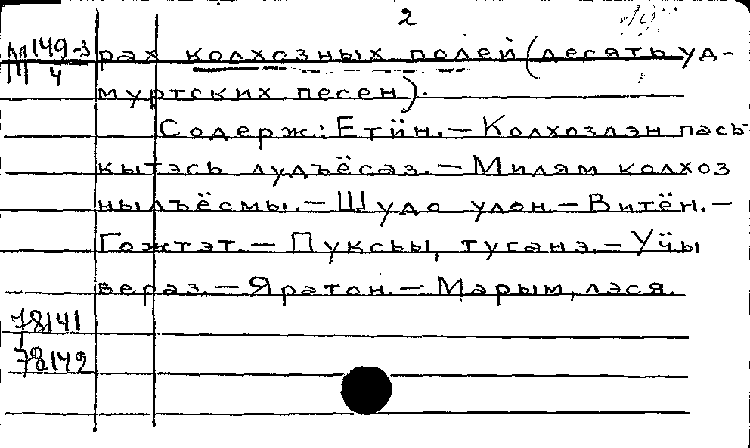 2
149-3
4
рах колхозных полей (десять уд-
муртских песен).
Содерж: Етӥн. — Колхозлэн пась-
кытэсь лудъёсаз. — Милям колхоз
нылъёсмы. — Шудо улон — Витён. —
Гожтэт. — Пуксьы, туганэ. — Учы
вераз. — Яратон. — Марым, лэся.
78141
78142